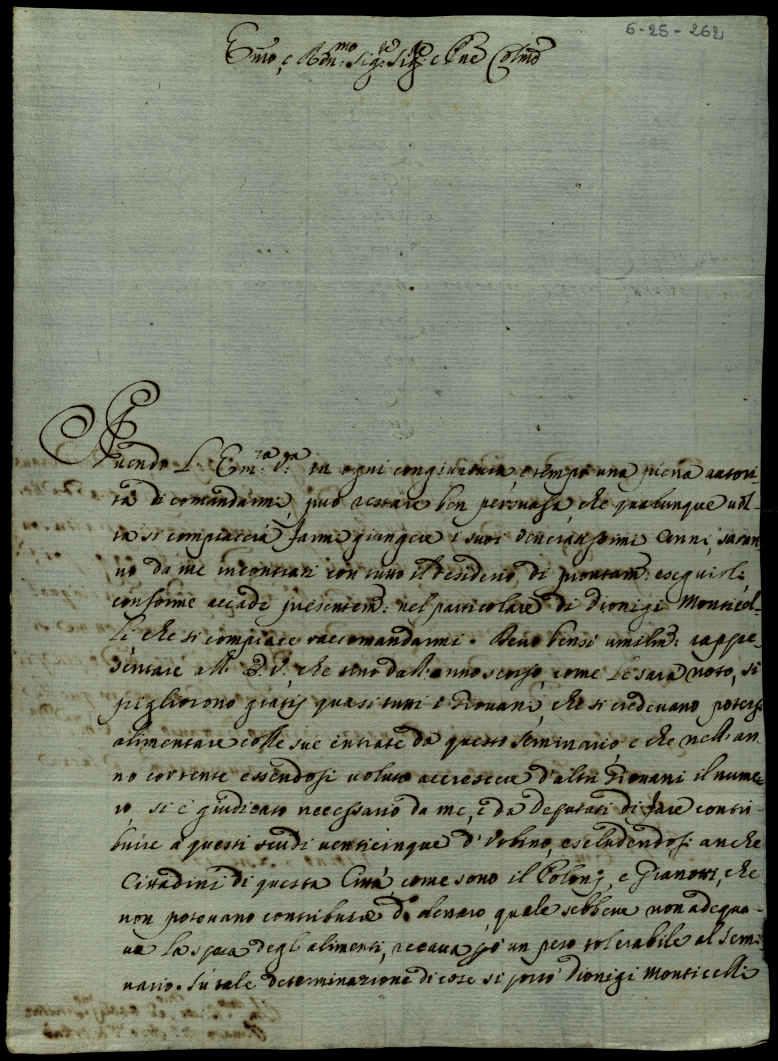 6-25-262
Em̃o, e Rm̃o Sig.re Sig.re e Pñe Colmo
Avendo L'Em.za V.a in ogni congiuntura, e tempo una piena autori-
tà di comandarmi, può restare ben persuasa che qualunque vol-
ta si compiacerà farmi giungere i suoi cenni, saran
no da me incontrati con tutto il desiderio di prontam: eseguirli
conforme accade presentem: nel particolare di Dionigi Monticel-
li che si compiace raccomandarmi. Devo bensì umilm: rappre-
sentare all' E.V. che sino dall'anno scorso come Le sarà noto, si
pigliorono gratis quasi tutti i Giovani, che si credevano potersi
alimentare colle sue entrate da questo seminario e che nell'an-
no corrente essendosi voluto accrescere d'altri Giovani il nume
ro, si è giudicato necessario da me, e da Deputati di fare contri-
buire a questi scudi venticinque d'Urbino, escludendosi anche
Cittadini di questa Città, come sono il Polonj, e Gianotti, che
non potevano contribuire d° denaro, quale sebbene non adequa-
va la spesa degl'alimenti, recava però un peso tolerabile al Semi-
nario. Su tale determinazione di cose si portò Dionigi Monticelli